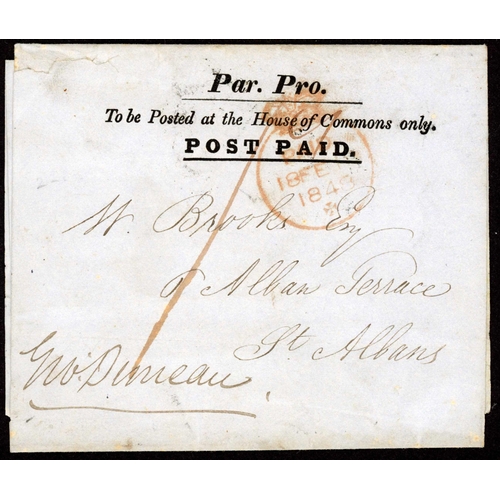 Par. Pro.
To be Posted at the House of Commons only.
POST PAID.
PAID
18 FE
184
W. Brooks Esq
Alban Terrace
St. Albans